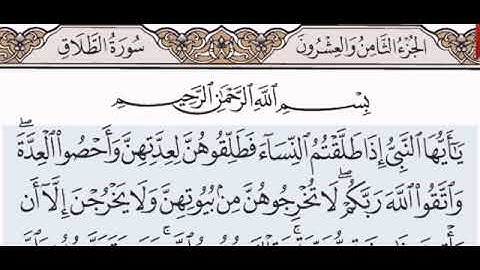 الجُزْءُ الثَّامِنُ وَالعِشْرُونَ سُورَةُ الطَّلَاقِ
بِسْمِ ٱللَّهِ ٱلرَّحْمَٰنِ ٱلرَّحِيمِ
يَٰٓأَيُّهَا ٱلنَّبِيُّ إِذَا طَلَّقْتُمُ ٱلنِّسَآءَ فَطَلِّقُوهُنَّ لِعِدَّتِهِنَّ وَأَحْصُوا۟ ٱلْعِدَّةَۖ
وَٱتَّقُوا۟ ٱللَّهَ رَبَّكُمْۖ لَا تُخْرِجُوهُنَّ مِنۢ بُيُوتِهِنَّ وَلَا يَخْرُجْنَ إِلَّآ أَن